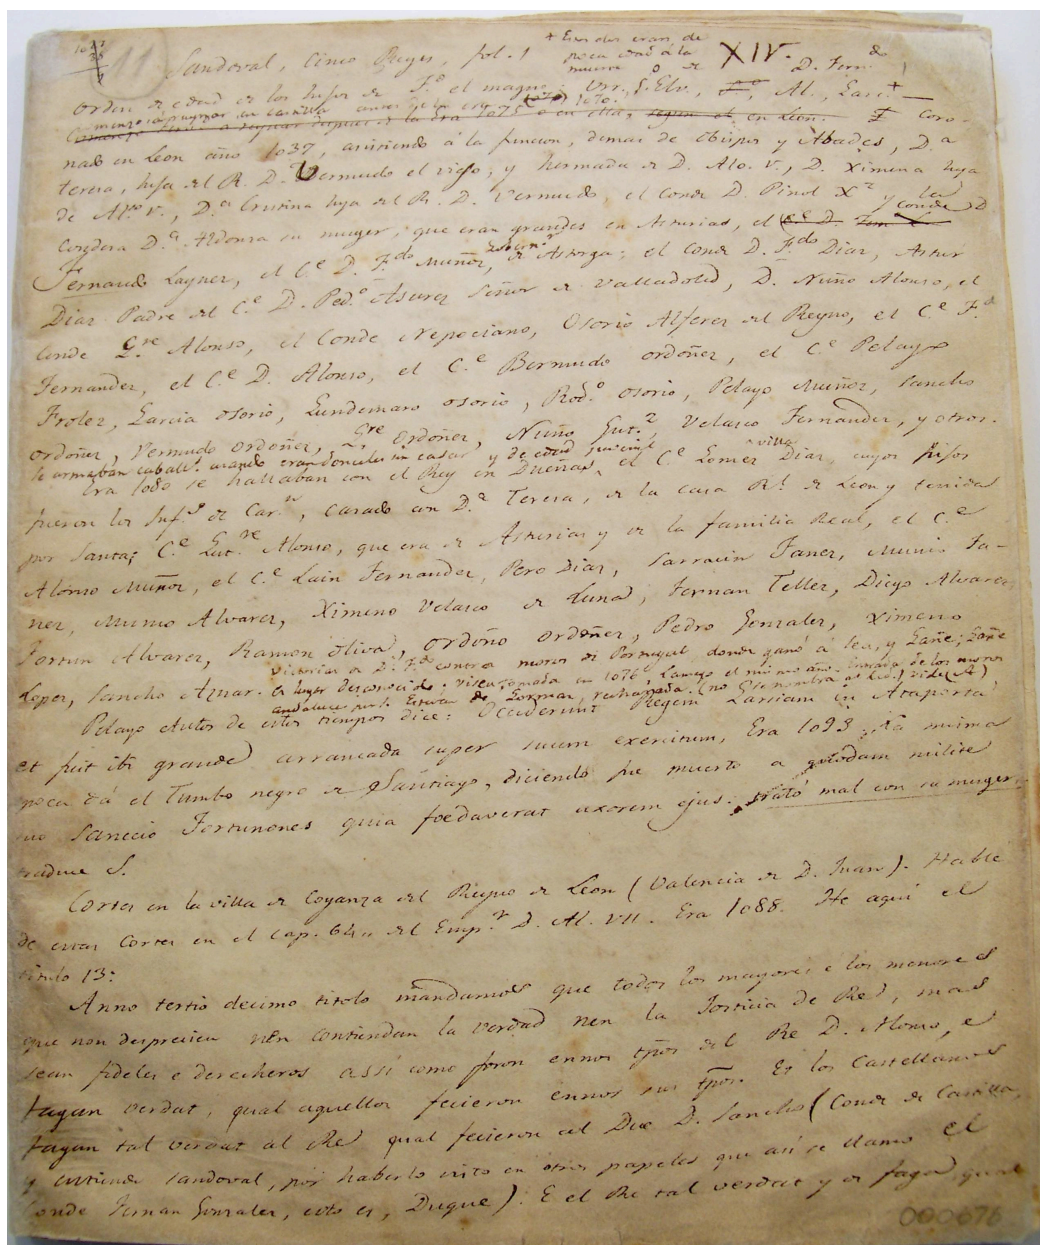 11
Sandoval, Cinco Reyes, fol. 1
+ Estos dos eran de
poca edad á la
muerte de
XIV.
D. Fern.do
Orden de edad de los hijos de F.º el magno: Urr., S. Elv., Al., Garc. +
1070.
en Leon. F. Coro-
nado en Leon año 1037, asistiendo á la funcion, demas de Obispos y Abades, D.a
Teresa, hija del R. D. Vermudo el viejo; y hermana de D. Alo. V., D. Ximena hija
de Al.so V., D.a Cristina hija del R. D. Vermudo, el Conde D. Piñol X.z y la
Condesa D.a Aldonza su muger, que eran grandes en Asturias, el Conde D.
Fernando Laynez, el C.e D. F.do Muñoz, de Astorga; el Conde D. F.do Diaz, Astur
Diaz Padre del C.e D. Ped.º Asurez Señor de Valladolid, D. Nuño Alonso, el
Conde G.re Alonso, el Conde Nepociano, Osorio Alferez del Reyno, el C.e F.do
Fernandez, el C.e D. Alonso, el C.e Bermudo Ordoñez, el C.e Pelayo
Frolez, Garcia Osorio, Gundemaro Osorio, Rod.º Osorio, Pelayo Muñoz, Sancho
Ordoñez, Vermudo Ordoñez, G.re Ordoñez, Nuño Gut.z, Velasco Fernandez, y otros.
Se armaban caball.s cuando eran donceles sin casar y de edad juvenil
Era 1080 se hallaban con el Rey en Dueñas, villa, el C.e Gomez Diaz, cuyos hijos
fueron los Inf.s de Car.n, casado con D.a Teresa, de la casa R.l de Leon y tenida
por Santa; C.e Gut.re Alonso, que era de Asturias y de la familia Real, el C.e
Alonso Muñoz, el C.e Lain Fernandez, Pero Diaz, Sarracin Fanez, Munio Fa-
nez, Munio Alvarez, Ximeno Velasco de Luna, Fernan Tellez, Diego Alvarez
Fortun Alvarez, Ramon Oliva, Ordoño Ordoñez, Pedro Gonzalez, Ximeno
Lopez, Sancho Aznar. Victorias de D. F.do contra moros de Portugal donde ganó á Sea, y Gañe; Gañe
es lugar desconocido. Viseo tomada en 1076, Lamego el mismo año. Entrada de los moros
andaluces por S. Esteban de Gormaz, rechazada. (no se nombra al Cid) vide (A)
Pelayo Autor de estos tiempos dice: Occiderunt Regem Garsiam in Ataporca,
et fuit ibi grande arrancada super suum exercitum, Era 1093. La misma
poca dá el Tumbo negro de Santiago, diciendo fue muerto a quodam milite
suo Sanccio Fortunones quia foedaverat uxorem ejus. trató mal con su muger,
traduce S.
Cortes en la villa de Coyanza del Reyno de Leon (Valencia de D. Juan). Hablé
de estas Cortes en el cap. 64 del Emp.r D. Al. VII. Era 1088. He aquí el
titulo 13:
Anno tertio decimo titolo mandamos que todos los mayores e los menores
que non desprecien nen contiendan la verdad nen la Josticia de Rey, mas
sean fideles e derecheros assí como foron ennos tpos del Re D. Alonso, e
fagan verdat, qual aquellos fecieron ennos sus tpos. Et los Castellanos
fagan tal verdat al Re qual fecieron al Dux D. Sancho (Conde de Castilla,
y entiende Sandoval, por haberlo visto en otros papeles que así se llamó el
Conde Fernan Gonzalez, esto es, Duque). E el Re tal verdat y os faga, qual
000676